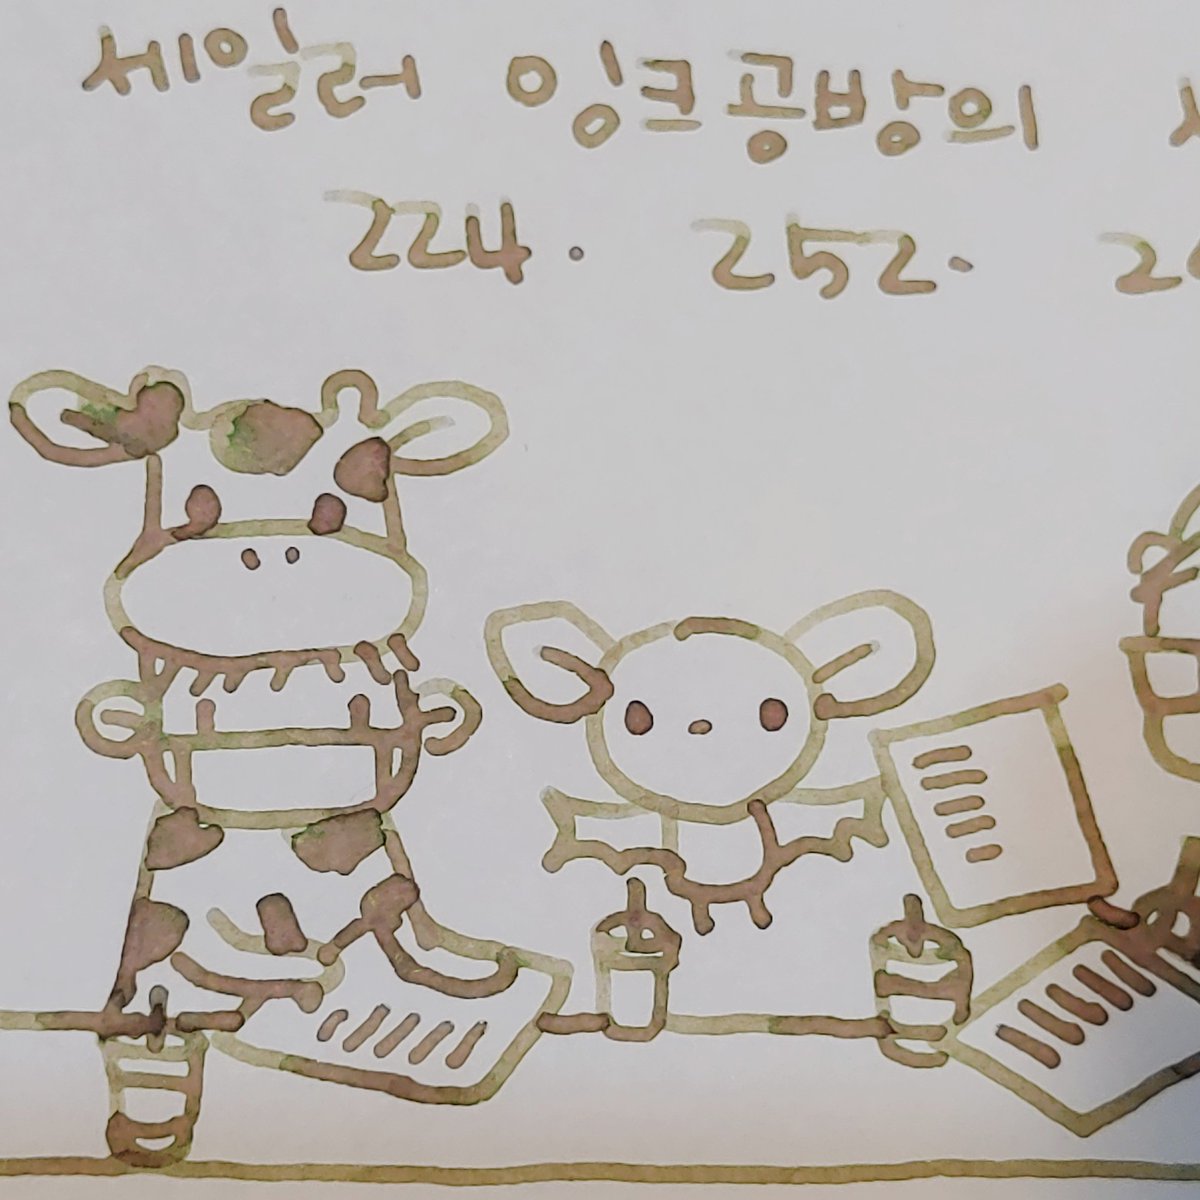 세일러 잉크공방의
224. 252.